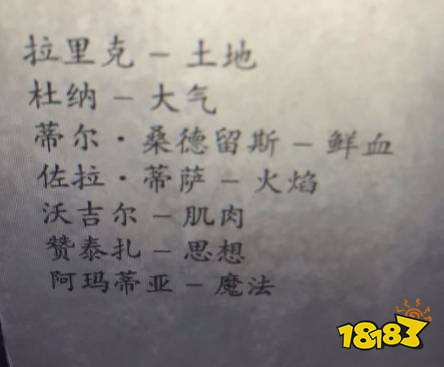 拉里克 – 土地
杜纳 – 大气
蒂尔·桑德留斯 – 鲜血
佐拉·蒂萨 – 火焰
沃吉尔 – 肌肉
赞泰扎 – 思想
阿玛蒂亚 – 魔法
18183